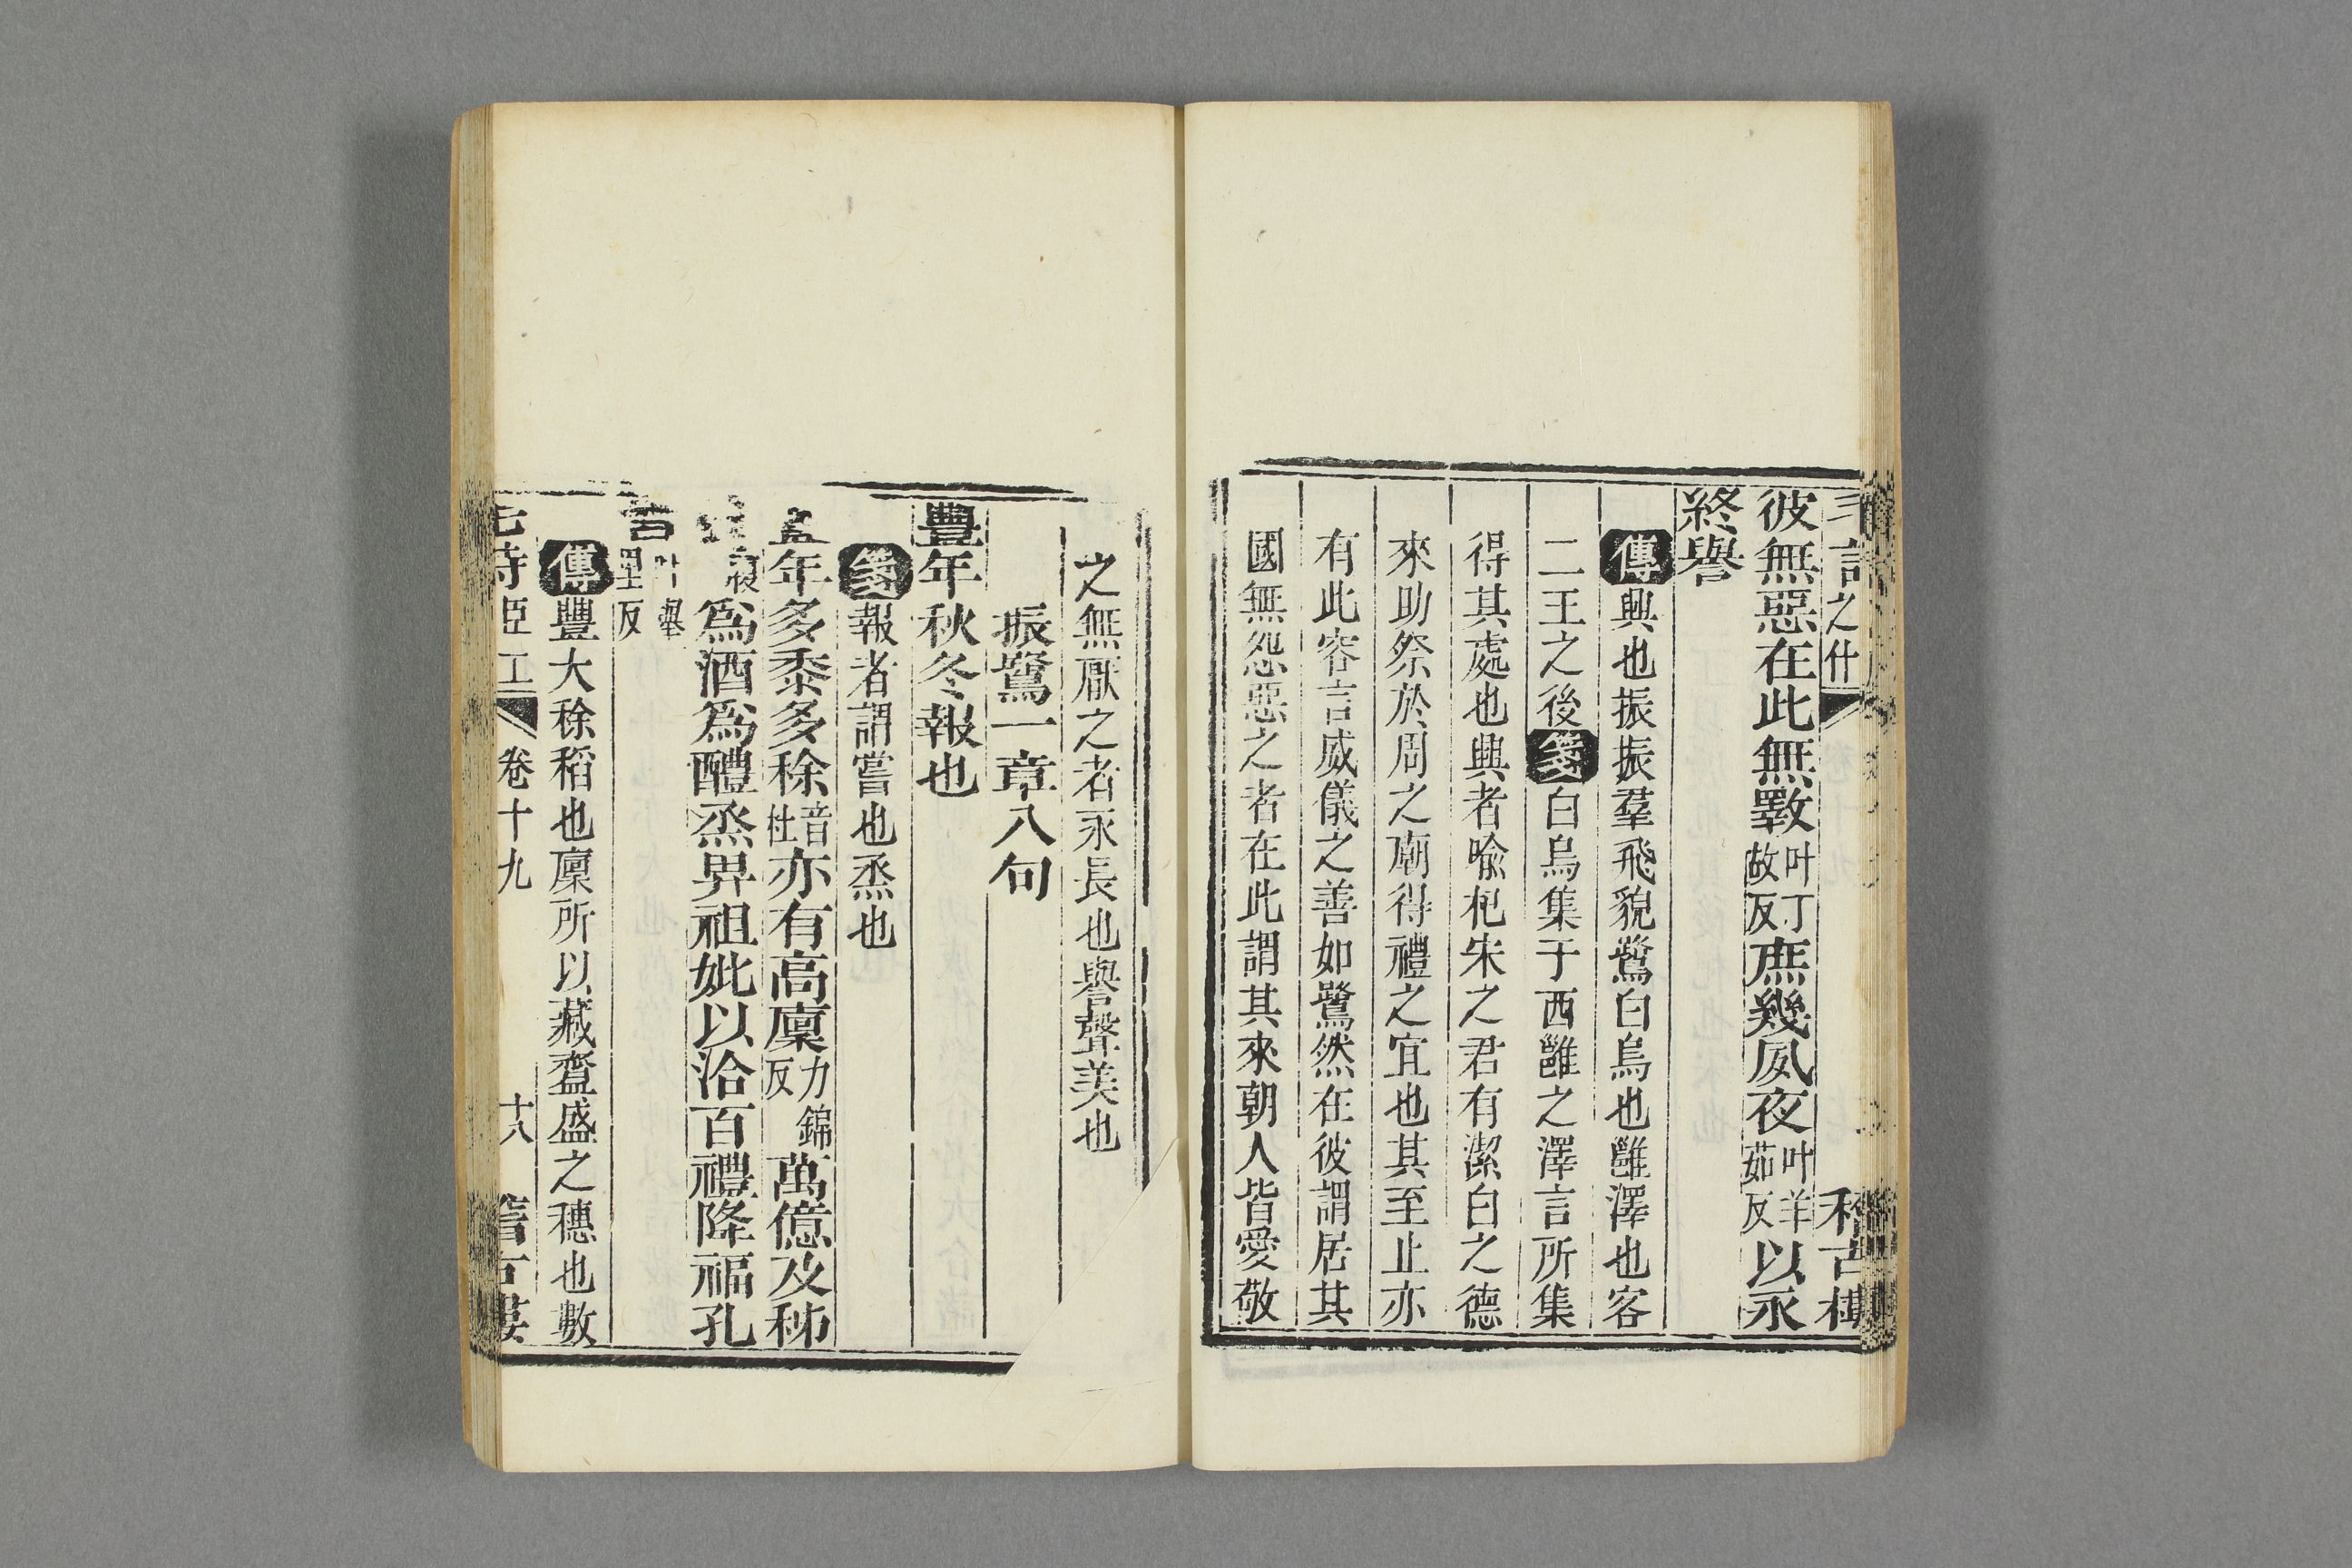 言之什 稽古樓
彼無惡在此無斁叶丁故反庶幾夙夜叶羊茹反以永
終譽
傳興也振振羣飛貌鷺白鳥也雝澤也客
二王之後箋白鳥集于西雝之澤言所集
得其處也興者喩杞宋之君有潔白之德
來助祭於周之廟得禮之宜也其至止亦
有此容言威儀之善如鷺然在彼謂居其
國無怨惡之者在此謂其來朝人皆愛敬
之無厭之者永長也譽聲美也
振鷺一章八句
豐年秋冬報也
箋報者謂嘗也烝也
年多黍多稌音杜亦有高廩力錦反萬億及秭
爲酒爲醴烝畀祖妣以洽百禮降福孔
皆叶舉里反
傳豐大稌稻也廩所以藏齍盛之穗也數
詩臣工 卷十九 十八 稽古樓